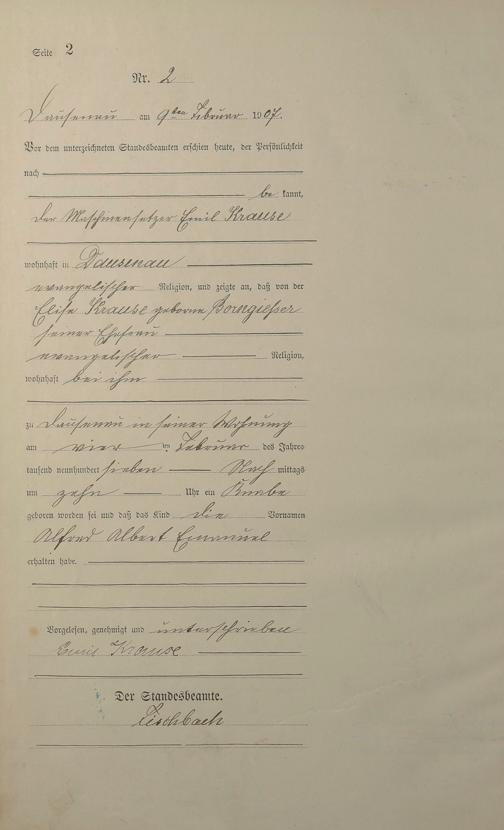 Seite 2
Nr. 2
Dausenau am 9ten Februar 1907.
Vor dem unterzeichneten Standesbeamten erschien heute, der Persönlichkeit
nach
be kannt,
der Maschinensetzer Emil Krause
wohnhaft in Dausenau
evangelischer Religion, und zeigte an, daß von der
Elise Krause geborne Borngießer
seiner Ehefrau
evangelischer Religion,
wohnhaft bei ihm
zu Dausenau in seiner Wohnung
am vier ten Februar des Jahres
tausend neunhundert sieben Nach mittags
um zehn Uhr ein Knabe
geboren worden sei und daß das Kind die Vornamen
Alfred Albert Emanuel
erhalten habe.
Vorgelesen, genehmigt und unterschrieben
Emil Krause
Der Standesbeamte.
Fischbach